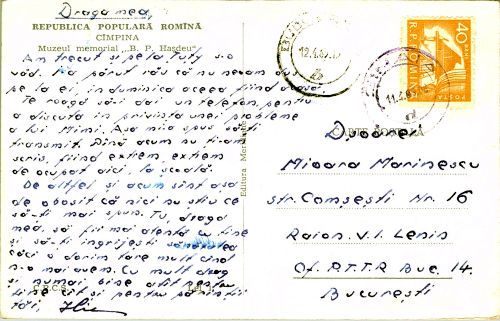 Draga mea,
REPUBLICA POPULARĂ ROMÎNĂ
CÎMPINA
Muzeul memorial „B. P. Hasdeu"
Am trecut și pela Tuty s-o
văd. Îmi părut rău că nu neveam dus
pe la ei, în duminica aceea fiind
Te roagă să-i dai un telefon, pentru
a discuta în privința unei probleme
a lui Mimi. Așa mi-a spus să-ți
transmit. Pînă acum nu ți-am
scris, fiind extrem, extrem
de ocupat aici, la școală.
De altfel și acum sînt așa
de obosit că nici nu știu ce
să-ți mai spun. Tu, draga
mea, să fii mai atentă cu tine
și să-ți îngrijești sănătatea
căci o dorim fare mult and
n-o mai avem. Cu mult drag
și numai bine atît pentru
tine cît și pentru părinții
tăi,
C.P.C.S.
Lei 1
Editura Meridiane
CARTE POȘTALĂ
40 BANI
R.P.ROMÎNĂ
POSTA
12.4.62
11.4.62
Dșoarei
Mioara Marinescu
str. Comșești Nr. 16
Raion. V. I. Lenin
Of. P.T.T.R Buc. 14.
București